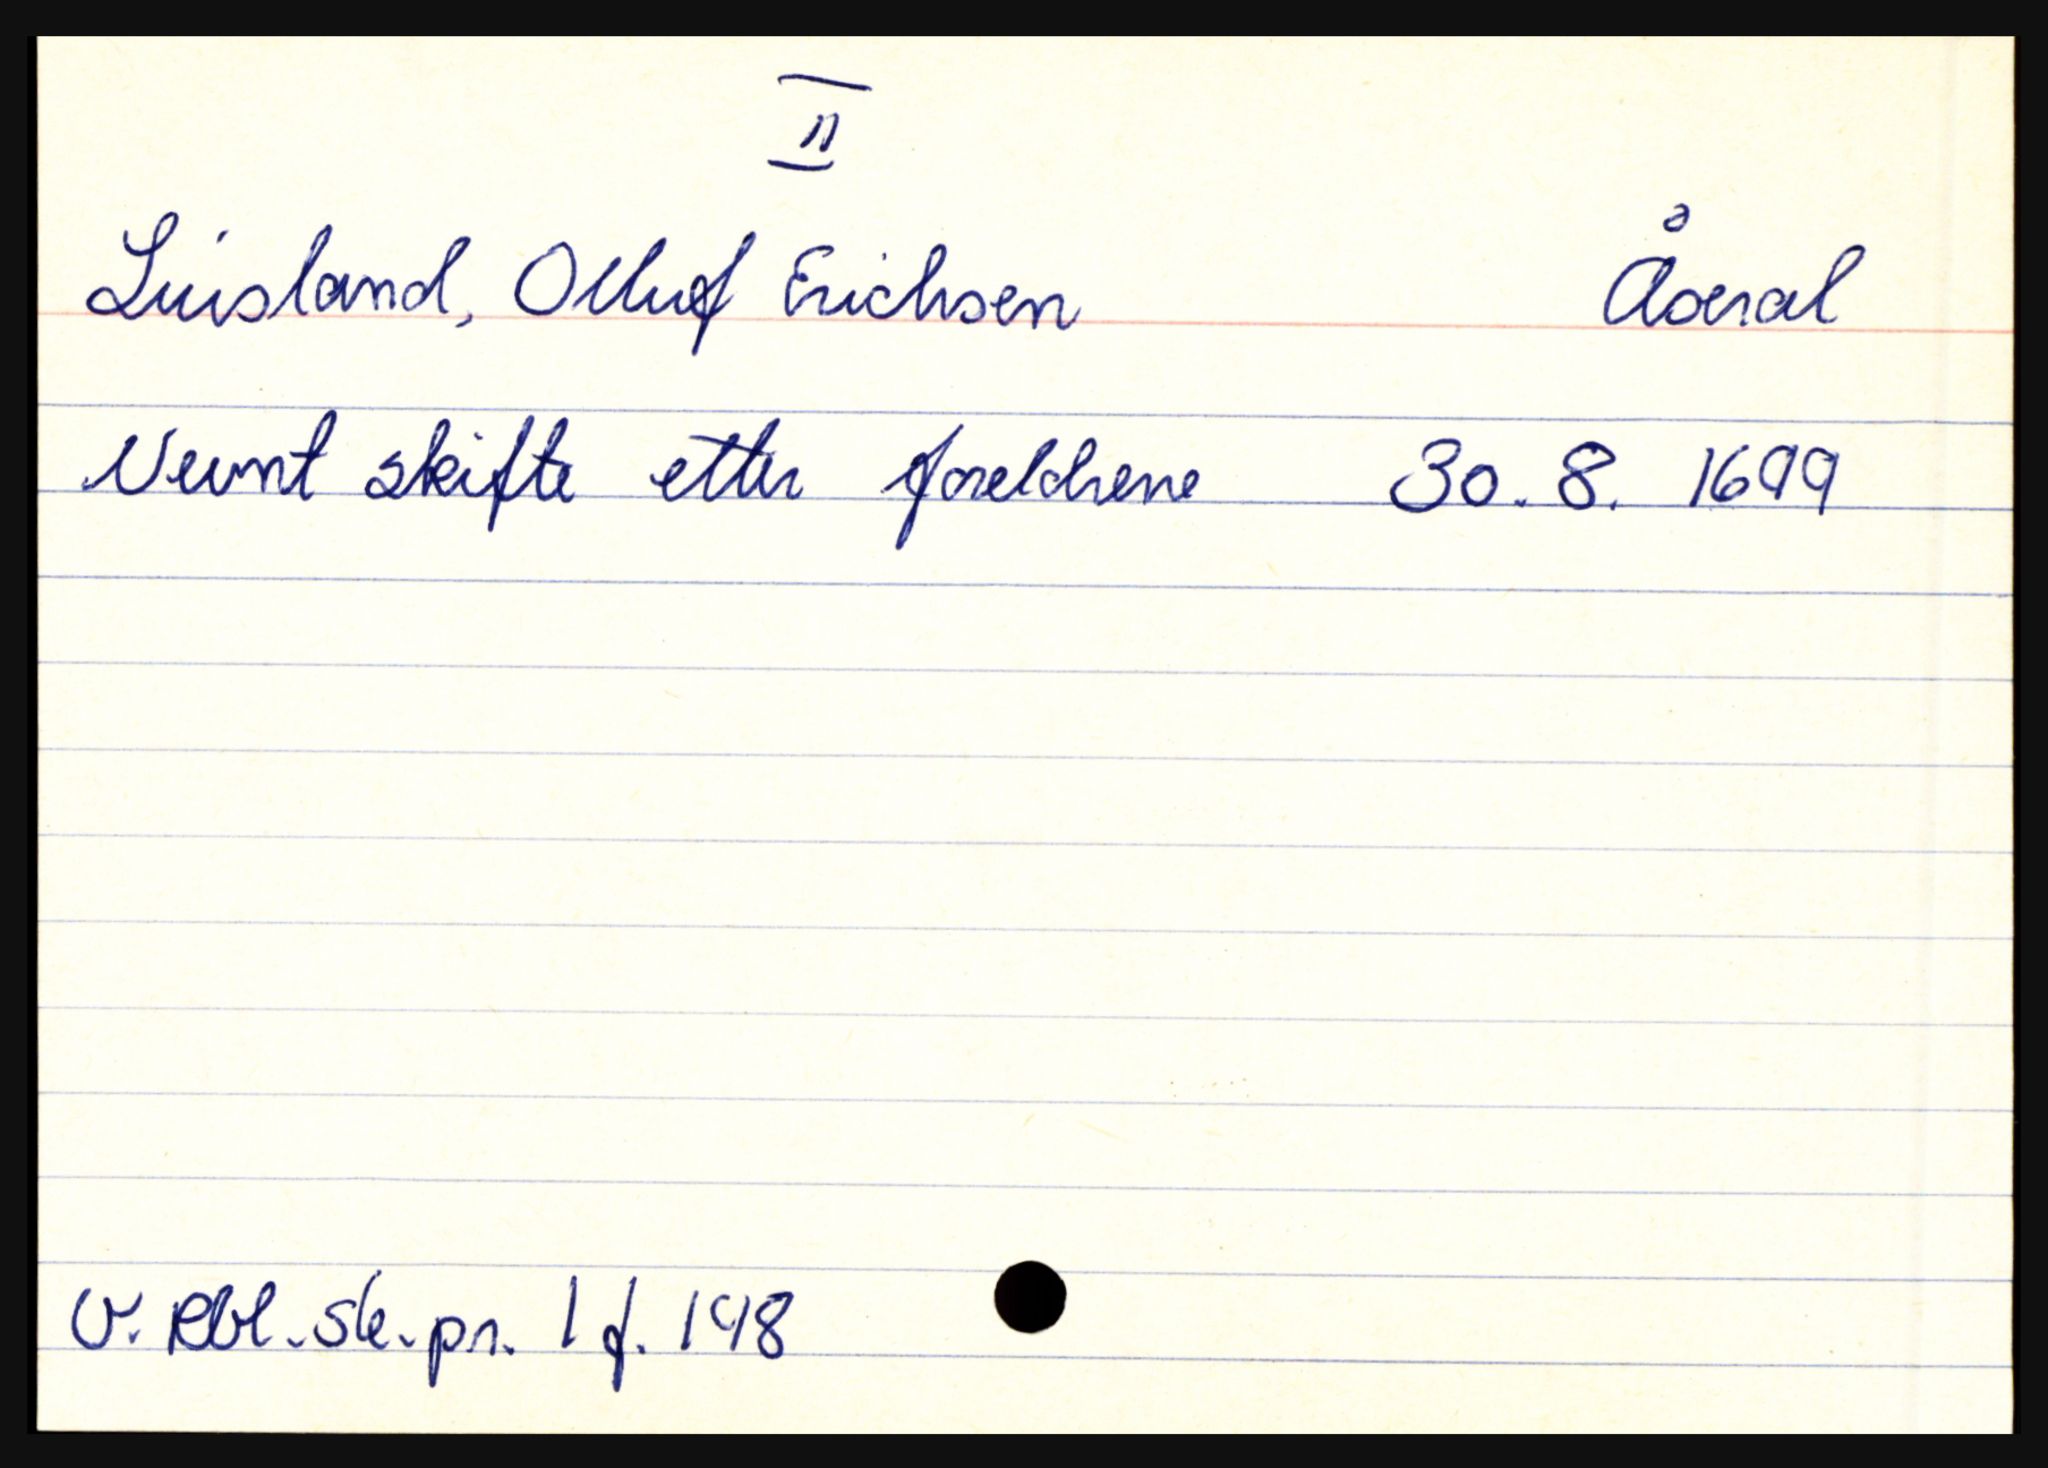 II
Luisland, Olluf Erichsen Åseral
Nevnt skifte etter foreldrene 30. 8. 1699
V. Rbl. sk. pr. 1 f. 148